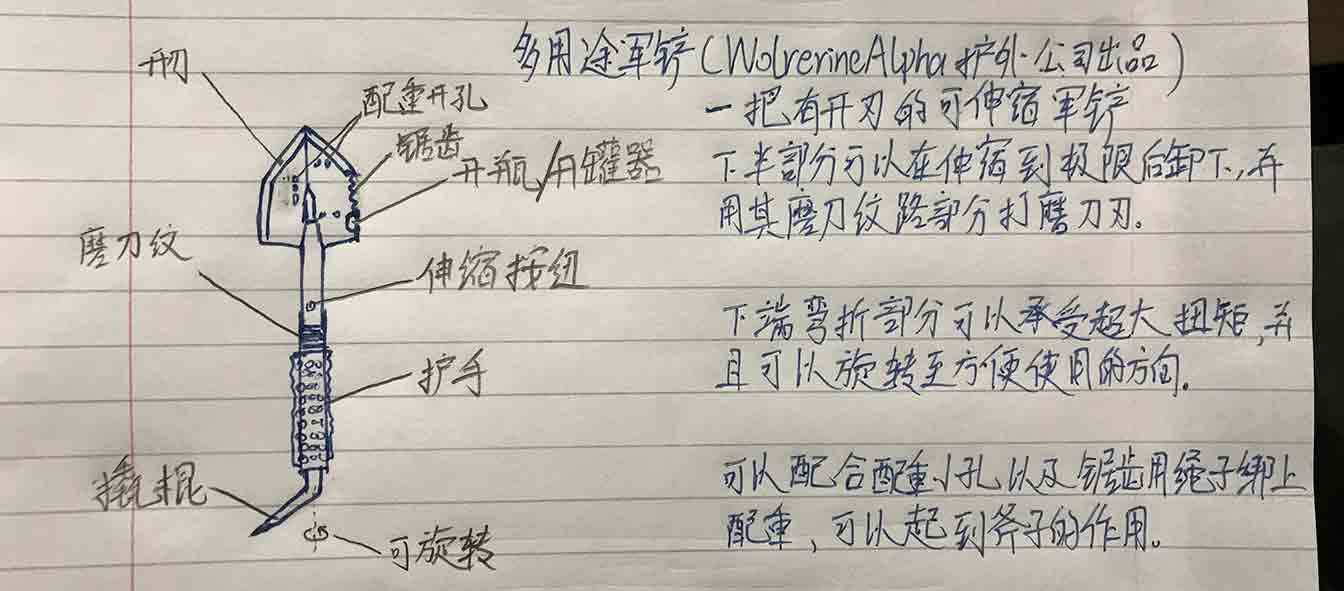 多用途军铲(WolverineAlpha护外公司出品)
一把有开刃的可伸缩军铲
下半部分可以在伸缩到极限后卸下,并
用其磨刀纹路部分打磨刀刃.
下端弯折部分可以承受超大扭矩,并
且可以旋转至方便使用的方向.
可以配合配重小孔以及锯齿用绳子绑上
配重,可以起到斧子的作用。
开刃
配重开孔
锯齿
开瓶/开罐器
磨刀纹
伸缩按钮
护手
撬棍
可旋转